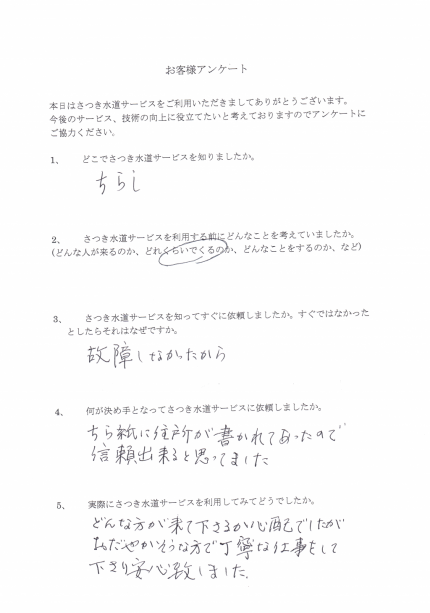 お客様アンケート
本日はさつき水道サービスをご利用いただきましてありがとうございます。
今後のサービス、技術の向上に役立てたいと考えておりますのでアンケートに
ご協力ください。
1、 どこでさつき水道サービスを知りましたか。
ちらし
2、 さつき水道サービスを利用する前にどんなことを考えていましたか。
(どんな人が来るのか、どれくらいでくるのか、どんなことをするのか、など)
3、 さつき水道サービスを知ってすぐに依頼しましたか。すぐではなかった
としたらそれはなぜですか。
故障しなかったから
4、 何が決め手となってさつき水道サービスに依頼しましたか。
ちら紙に住所が書かれてあったので
信頼出来ると思ってました
5、 実際にさつき水道サービスを利用してみてどうでしたか。
どんな方が来て下さるか心配でしたが
おだやかそうな方で丁寧な仕事をして
下さり安心致しました。